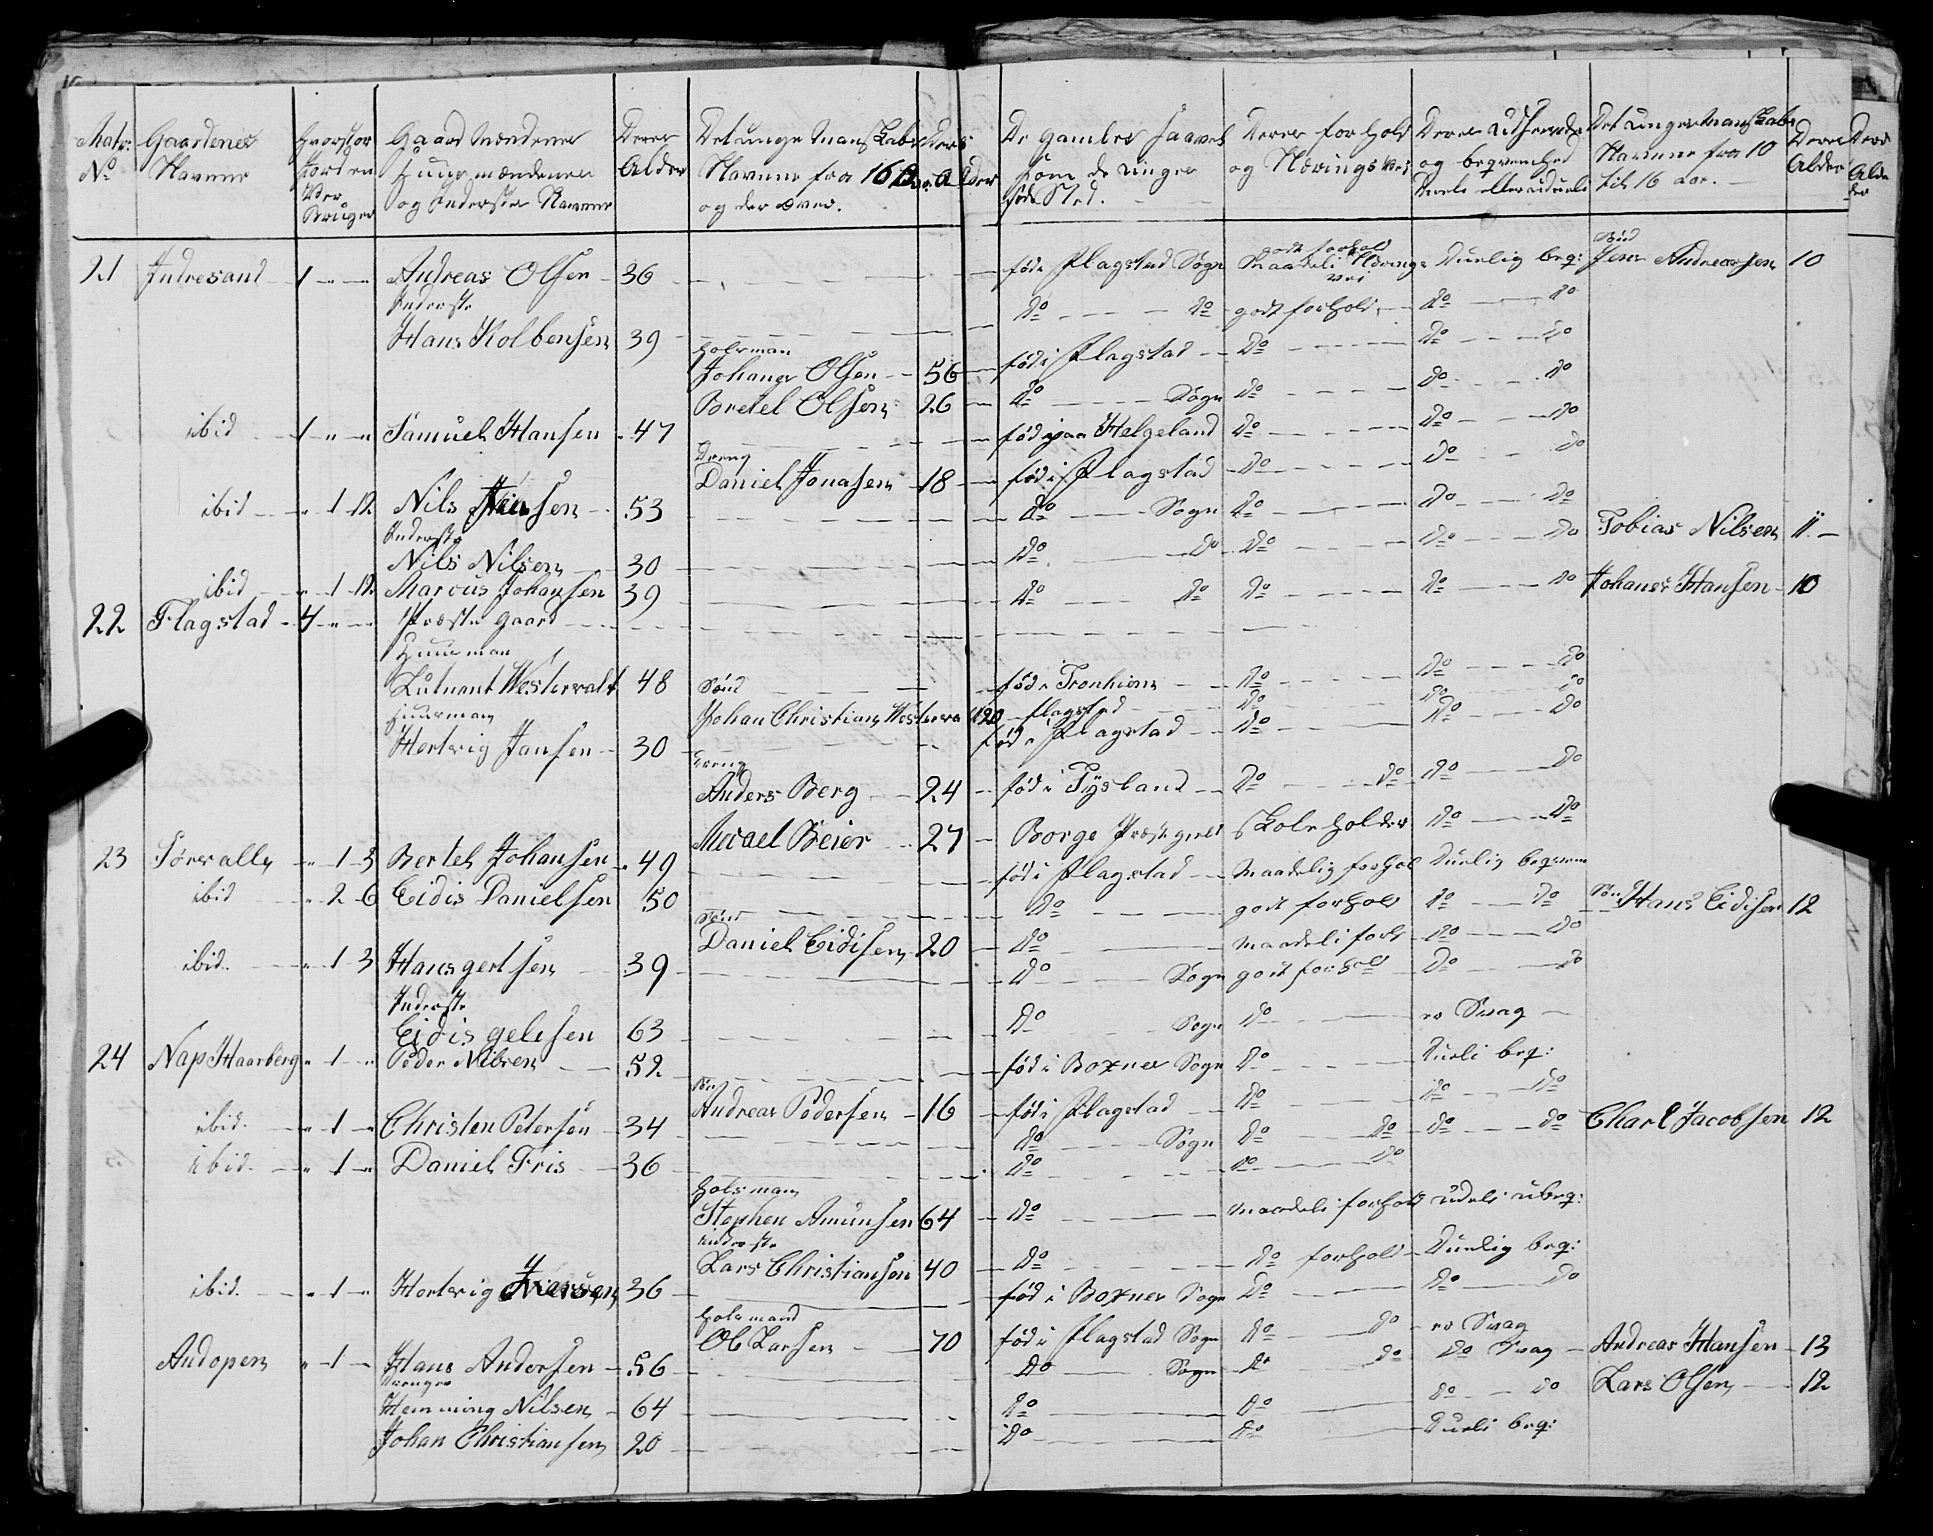 Matr: N° | Gaardenes Navne | Hvor stor Jord en Ver Bruger | Gaard Mændenes Huusmændenes og Inderster Navne | Deres Alder | Det unge Mandskabs Navne fra 16 Aar og der over. | Deres Alder | De gamles saavel som de unges føde Sted. | Deres forhold og Nærings Vei | Deres Udseende og beqvemhed Dueli eller uduelig | Det unge Mandskabs Navne fra 10 til 16 aar. | Deres Alder | Deres Alder
21 | Indresand | 1 " " | Andreas Olsen | 36 | | | fød i Flagstad Sogn | godt forhold Maadeli Nærings vei | Duelig beq: | Sød Jens Andreassen | 10
Inderste
Hans Kolbensen | 39 | | | D° D° | godt forhold | D° D°
holsman
Johanes Olsen | 56 | fød i Flagstad | D° | D° D°
Bretel Olsen | 26 | D° Sogn | D° | D° D°
ibid | 1 " " | Samuel Hansen | 47 | | | fød paa Helgeland | D° | D° D°
Dreng
Daniel Jonasen | 18 | fød i Flagstad | D° | D° D°
ibid | " 1 12 | Nils Jensen | 53 | | | D° Sogn | D° | D° D° | Tobias Nilsen | 11
Inderste
Nils Nilsen | 30 | | | D° D° | D° | D° D°
ibid | " 1 12 | Marcus Johansen | 39 | | | D° D° | D° | D° D° | Johanes Hansen | 10
22 | Flagstad | 4 " " | Præste Gaard
Huusman
Lutnant Westervalt | 48 | | | fød i Tronhiem | D° | D° D°
Sønd
Johan Christian Westerva | 20 | flagstad | D° | D° D°
Huusman
Hertvig Jansen | 30 | | | fød i Flagstad | D° | D° D°
Dreng
Anders Berg | 24 | fød i Fysland | D° D° | D° D°
Micael Beier | 27 | Borge Præstegield | Skoleholder | D° D°
23 | | " 1 3 | Bertel Johansen | 49 | | | fød i Flagstad | Maadelig forhol | Duelig beqvem
ibid | " 2 6 | Eidis Danielsen | 50 | | | D° | godt forhold | D° D° | Søn Hans Eidisen | 12
Sønd
Daniel Eidisen | 20 | D° | maadeli forh | D° D°
ibid. | " 1 3 | Hans gertsen | 39 | | | D° Sogn | godt forhold | D° D°
Inderste
Eidis gelesen | 63 | | | D° Sogn | D° | er Svag
24 | Nap Haarberg | " 1 " | Peder Nilsen | 52 | | | fød i Boxnes Sogn | D° | Dueli beq:
Søn
Andreas Pedersen | 16 | fød i Flagstad | D° | D° D°
ibid. | " 1 " | Christen Petersen | 34 | | | D° Sogn | D° D° | D° D° | Charl Jacobsen | 12
ibid. | " 1 " | Daniel Fris | 36 | | | D° | D° D°
holsman
Stephen Amunsen | 64 | D° | maadeli forhold | udueli ubeq:
inderste
Lars Christiansen | 40 | D° | D° forhold | Duelig beq:
ibid. | " 1 " | Hertvig | 36 | | | fød i Boxnes Sogn | D° | D° D°
holsmand
Ol Larsen | 70 | fød i Flagstad Sogn | D° D° | er Svag
Andopen | " 1 " | Hans Andersen | 56 | | | D° Sogn | D° D° | D° Svag | Andreas Hansen | 13
Drenger
Hemming Nilsen | 64 | | | D° | D° | D° D° | Lars Olsen | 12
Johan Christiansen | 20 | | | D° | D° | Dueli beq: